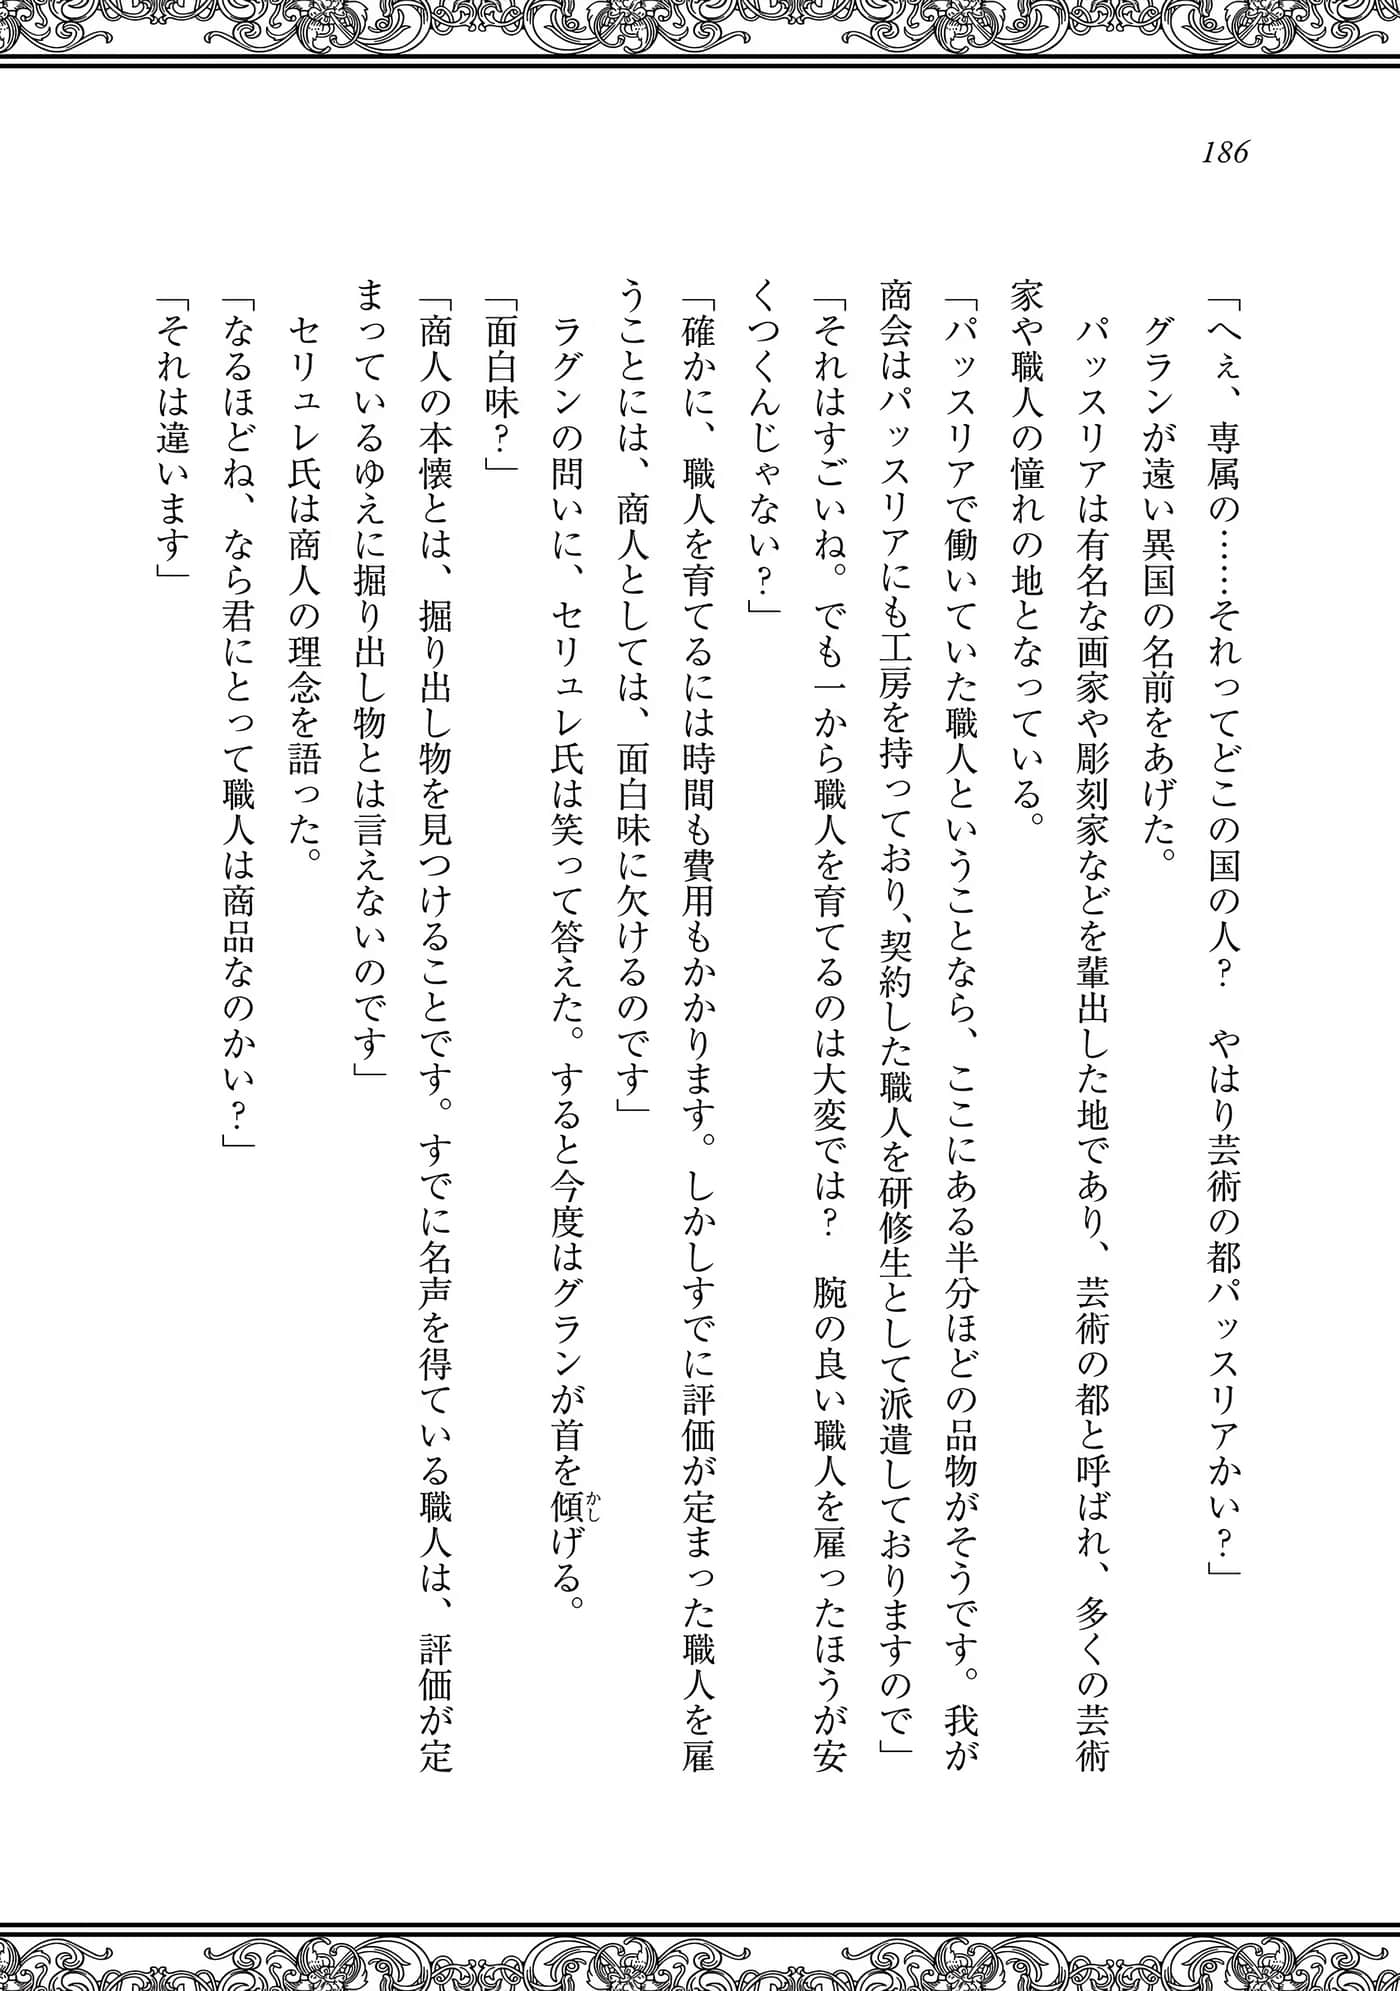 186
「へぇ、専属の……それってどこの国の人？　やはり芸術の都パッスリアかい？」
　グランが遠い異国の名前をあげた。
　パッスリアは有名な画家や彫刻家などを輩出した地であり、芸術の都と呼ばれ、多くの芸術
家や職人の憧れの地となっている。
「パッスリアで働いていた職人ということなら、ここにある半分ほどの品物がそうです。我が
商会はパッスリアにも工房を持っており、契約した職人を研修生として派遣しておりますので」
「それはすごいね。でも一から職人を育てるのは大変では？　腕の良い職人を雇ったほうが安
くつくんじゃない？」
「確かに、職人を育てるには時間も費用もかかります。しかしすでに評価が定まった職人を雇
うことには、商人としては、面白味に欠けるのです」
　ラグンの問いに、セリュレ氏は笑って答えた。すると今度はグランが首を傾げる。
かし
「面白味？」
「商人の本懐とは、掘り出し物を見つけることです。すでに名声を得ている職人は、評価が定
まっているゆえに掘り出し物とは言えないのです」
　セリュレ氏は商人の理念を語った。
「なるほどね、なら君にとって職人は商品なのかい？」
「それは違います」